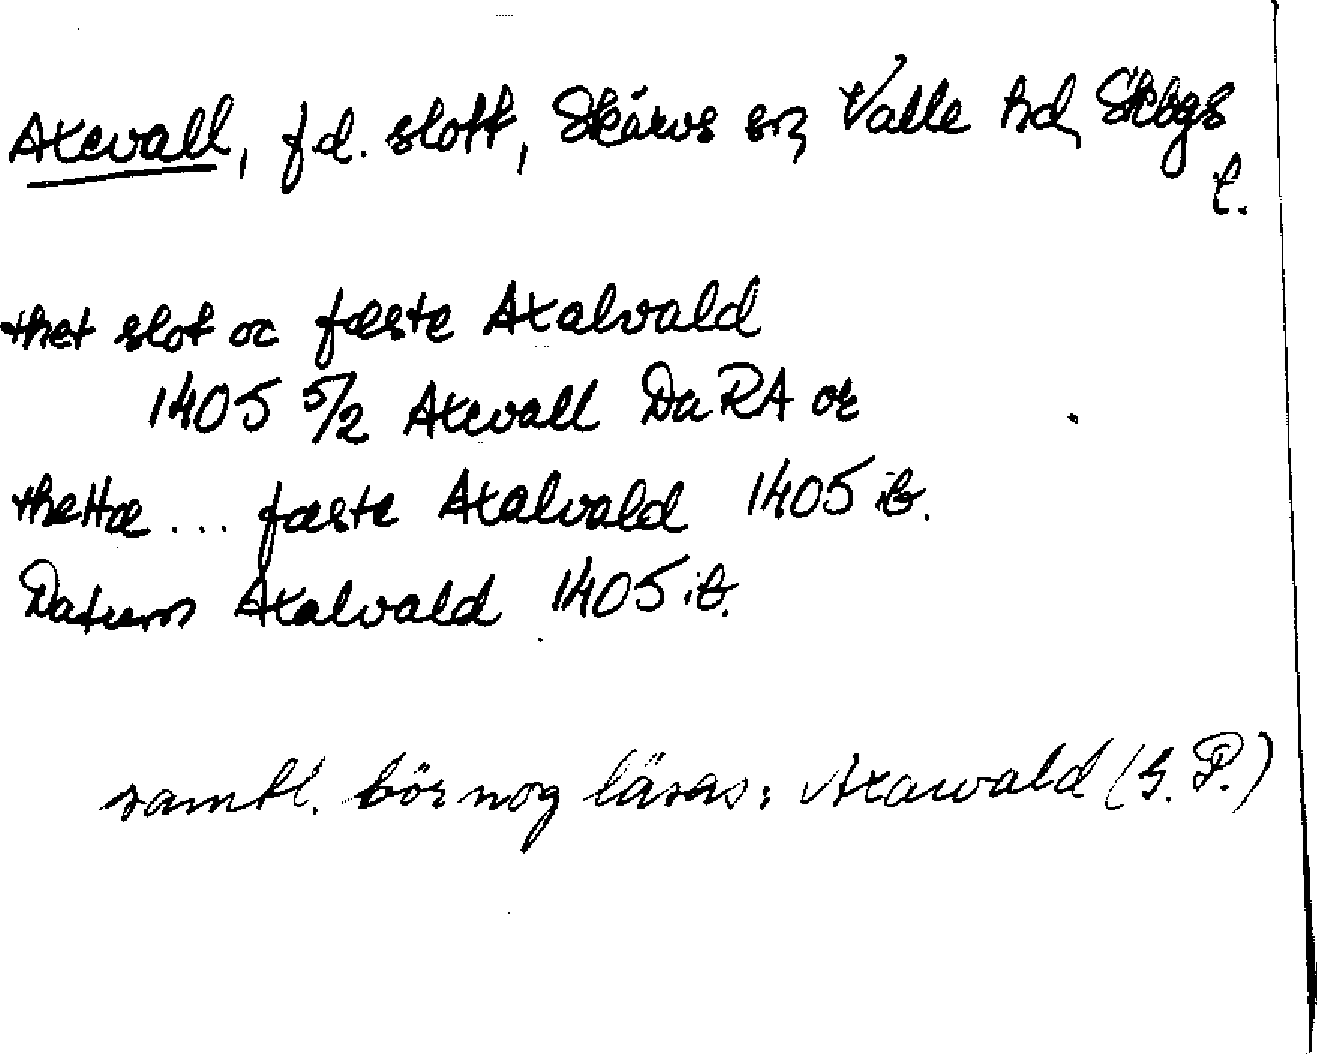 Axevall, f d. slott, Skärvs sn, Valle hd, Skbgs
l.
thet slot oc fæste Axalvald
1405 5/2 Axevall Da RA or
thettæ ... fæste Axalvald 1405 ib.
Datum Axalvald 1405 ib.
samtl. bör nog läsas: Axawald (G. P.)